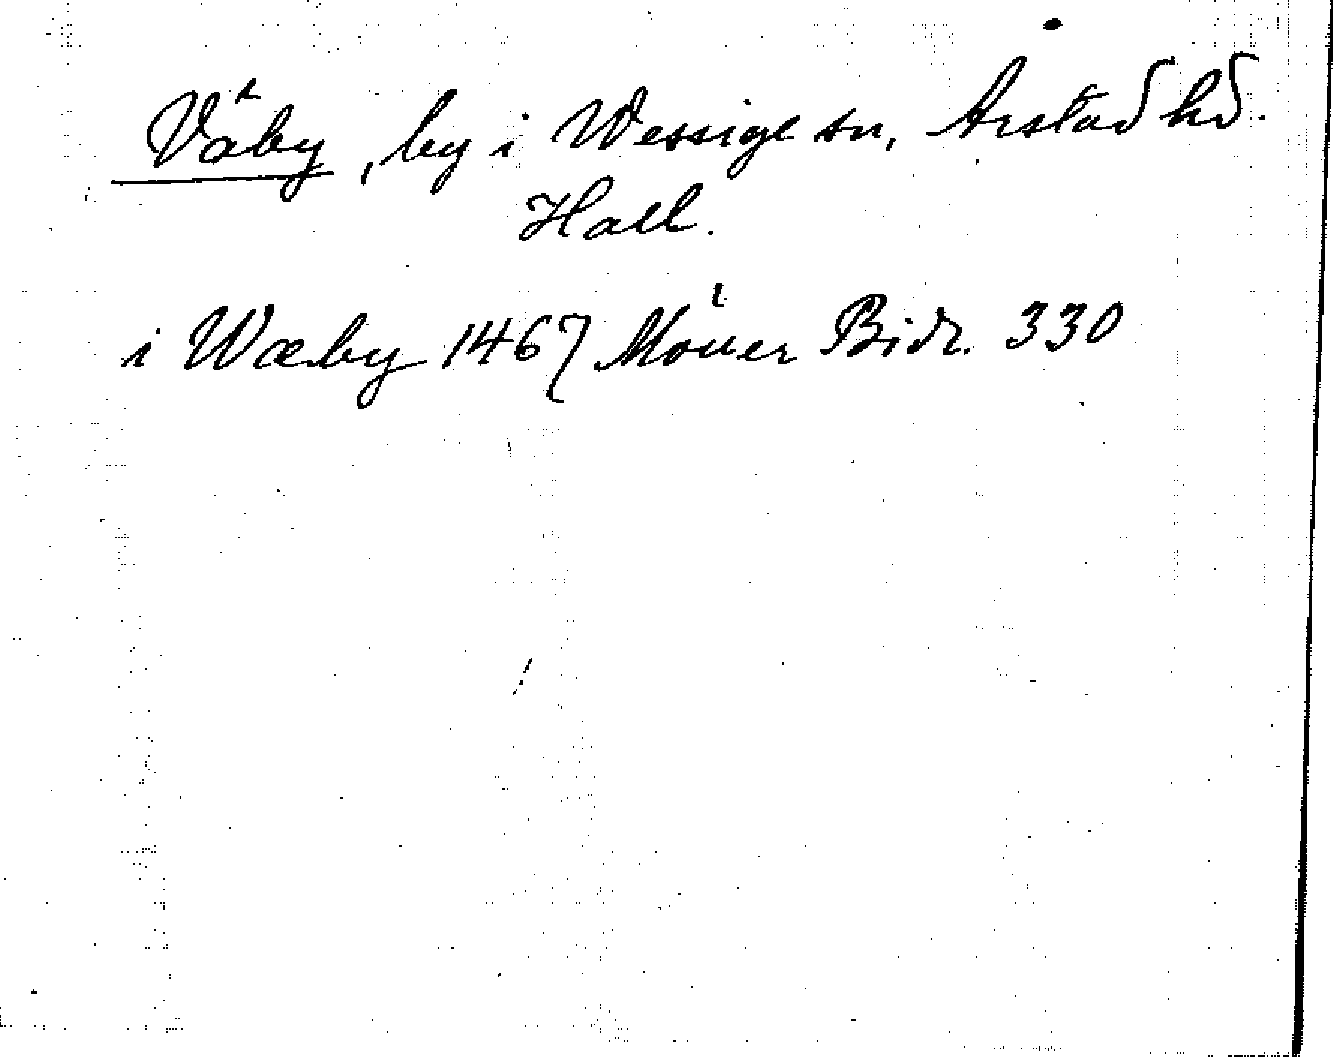 Väby, by i Wessige sn, Årstad hd.
Hall.
i Wæby 1467 Möller Bidr. 330